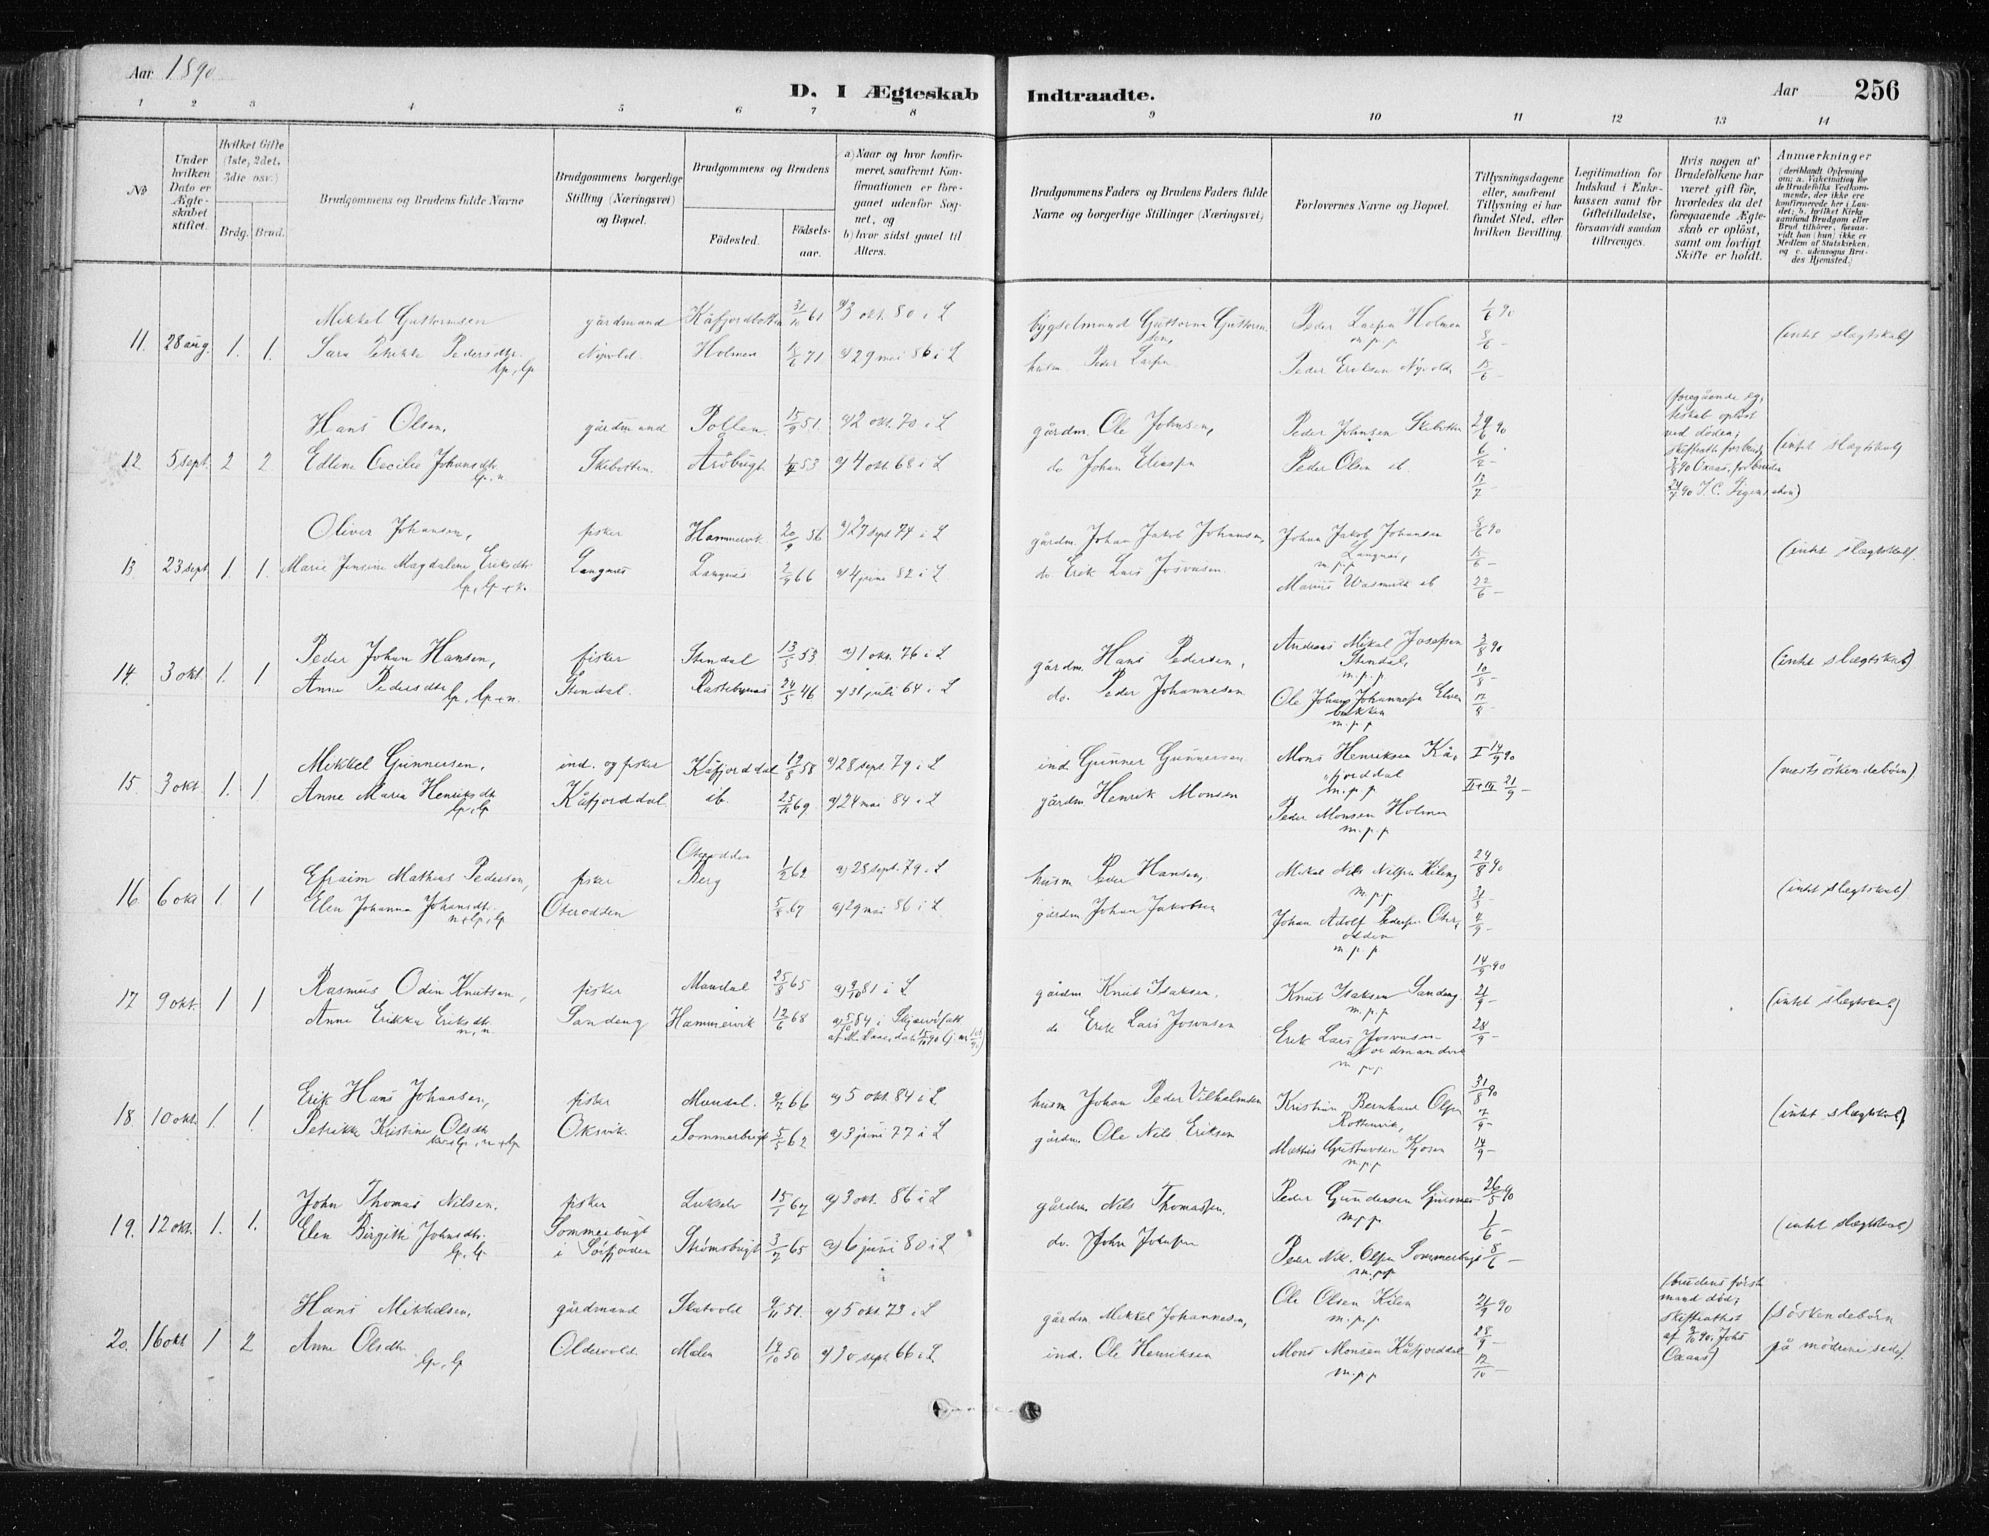 Aar 1890
D. I Ægteskab Indtraadte.
Aar 256
1 2 3 4 5 6 7 8 9 10 11 12 13 14
No
Under hvilken Dato er Ægteskabet stiftet.
Hvilket Gifte (1ste, 2det, 3die osv.)
Brdg. Brud.
Brudgommens og Brudens fulde Navne
Brudgommens borgerlige Stilling (Næringsvei) og Bopæl.
Brudgommens og Brudens
Födested. Födselsaar.
a) Naar og hvor konfirmeret, saafremt Konfirmationen er foregaaet udenfor Sognet, og
b) hvor sidst gaaet til Alters.
Brudgommens Faders og Brudens Faders fulde Navne og borgerlige Stillinger (Næringsvei)
Forlovernes Navne og Bopæl.
Tillysningsdagene eller, saafremt Tillysning ei har fundet Sted, efter hvilken Bevilling.
Legitimation for Indskud i Enkekassen samt for Giftetilladelse, forsaavidt saadan tiltrænges.
Hvis nogen af Brudefolkene har været gift för, hvorledes da det foregaaende Ægteskab er oplöst, samt om lovligt Skifte er holdt.
Anmærkninger (deriblandt Oplysning om: a. Vaccination for de Brudefolks Vedkommende, der ikke ere konfirmerede her i Landet; b. hvilket Kirkesamfund Brudgom eller Brud tilhörer, forsaavidt han (hun) ikke er Medlem af Statskirken, og c. udensogns Brudes Hjemsted.)
11. 28 aug. 1. 1. Mikkel Guttormsen gårdmand Kåfjordbotten 31/10 61 a) 3 okt. 80 i L bygselmand Guttorm Guttormsen, Peder Larsen Holmen m.p.p. 1/6 90 8/6 – (intet slægtskab)
Sara Petrikke Pedersdtr. lp, lp Nyvold. Holmen 71 a) 29 mai 86 i L husm. Peder Larsen Peder Eriksen Nyvold 15/6 –
12 5 sept. 2 2 Hans Olsen, gårdmand Pollen 15/9 51. a) 2 okt. 70 i L gårdm. Ole Johnsen, Peder Johnsen Skibotten 29/6 90 (foregående egteskab opløst ved døden; (intet slægtskab)
Edlene Cecilie Johansdtr. lp, n. Skibotten. Årøbugt 53 a) 4 okt. 68 i L do Johan Eliasen Peder Olsen ib. 13/7 –
13 23 sept 1. 1. Oliver Johansen, fisker Hammervik. 20/9 56 a) 27 sept 74 i L gårdm. Johan Jakob Johansen, Johan Jakob Johansen Langnes, m.p.p 8/6 90 15/6 – (intet slægtskab).
Marie Jensine Magdalene Eriksdtr. Langnes Langnes 66 a) 4 juni 82 i L do. Erik Lars Josvasen. Marius Wasmuth ib 22/6 –
14. 3 okt. 1. 1 Peder Johan Hansen, fisker Stendal 13/5 53 a) 1 okt. 76 i L gårdm. Hans Pedersen, Andreas Mikal Josefsen Stendal, m.p.p 3/8 90 10/8 – (intet slægtskab)
Anne Pedersdtr. lp, lp+n. Stendal. Rastebynes 24/5 46 a) 31 juli 64 i L do. Peder Johannesen Ole Johan Johannesen Elvebakken m.p.p 17/8 –
15. 3 okt. 1. 1 Mikkel Gunnersen, ind. og fisker Kåfjorddal 17/8 58 a) 28 sept. 79 i L ind. Gunner Gunnersen Mons Henriksen Kåfjorddal m.p.p I 14/9 90 (næstsöskendebörn)
Anne Maria Henriksdtr. lp, lp Kåfjorddal ib. 69 a) 24 mai 84 i L gårdm. Henrik Monsen Peder Monsen Holmen m.p.p II+III 21/9 –
16. 6 okt 1 1 Efraim Mathias Pedersen, fisker Oterodden Berg 62 a) 28 sept. 79 i L husm Peder Hansen, Mikal Nils Nilsen Kileng m.p.p 24/8 90 (intet slægtskab)
Elen Johanna Johansdtr. n+lp, lp Oterodden 5/8 67 a) 29 mai 86 i L gårdm Johan Jakobsen Johan Adolf Pedersen Oterodden m.p.p
17 9 okt. 1 1 Rasmus Odin Knutsen, fisker Mandal 25/8 65 a) 9/10 81 i L gårdm Knut Isaksen, Knut Isaksen Sandeng m.p.p 14/9 90 21/9 – (intet slægtskab)
Anne Erikka Eriksdtr. n, n Sandeng Hammervik 12/6 68 a) 84 i Skjervö do Erik Lars Josvasen Erik Lars Josvasen m.p.p 28/9 –
18 10 okt. 1. 1. Erik Hans Johansen, fisker Mandal. 66 a) 5 okt. 84 i L husm Johan Peder Vilhelmsen Kristian Bernhard Olsen Rottenvik, 31/8 90 7/9 – (intet slægtskab)
Petrikke Kristine Olsdtr. Oksvik. Sommerbugt 5/5 62 a) 3 juni 77 i L gårdm. Ole Nils Eriksen Mathis Gustavsen Kjosen m.p.p 14/9 –
19. 12 okt. 1. 1. John Thomas Nilsen, fisker 67 a) 3 okt. 86 i L gårdm Nils Thomasen, Peder Gundersen m.p.p 26/5 90 1/6 (intet slægtskab)
Elen Birgitte Johnsdtr. lp, lp Sommerbugt i Sörfjorden Strömsbugt 3/7 65 a) 6 juni 80 i L do. John Johnsen Peder Nik. Olsen Sommerbugt m.p.p 8/6 –
20. 16 okt 1 2 Hans Mikkelsen, gårdmand Skatvold 51. a) 5 okt. 73 i L gårdm. Mikkel Johannesen, Ole Olsen Kilen m.p.p 21/9 90 (brudens første mand död; skifteattest (söskendebörn
Anne Olsdtr. lp, lp Oldervold. Malen 50 a) 30 sept. 66 i L ind. Ole Henriksen Mons Monsen Kåfjorddal m.p.p 28/9 – 12/10 – på mödrene side).